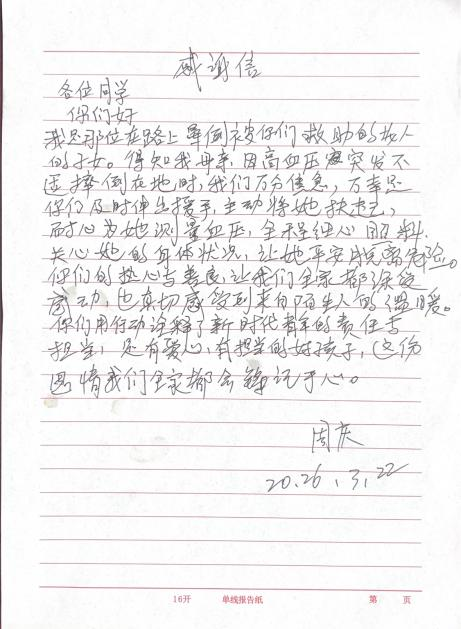 感谢信
各位同学
你们好
我是那位在路上晕倒被你们救助的老人
的子女。得知我母亲因高血压突发不
适摔倒在地时,我们万分焦急,万幸是
你们及时伸出援手,主动将她扶起,
耐心为她测量血压,全程细心照料,
关心她的身体状况,让她平安脱离危险。
你们的热心与善良,让我们全家都深受
感动,也真切感受到来自陌生人的温暖。
你们用行动诠释了新时代青年的责任与
担当,还有爱心,有担当的好孩子,这份
恩情我们全家都会铭记于心。
周庆
2026,3,22
16开 单线报告纸 第 页